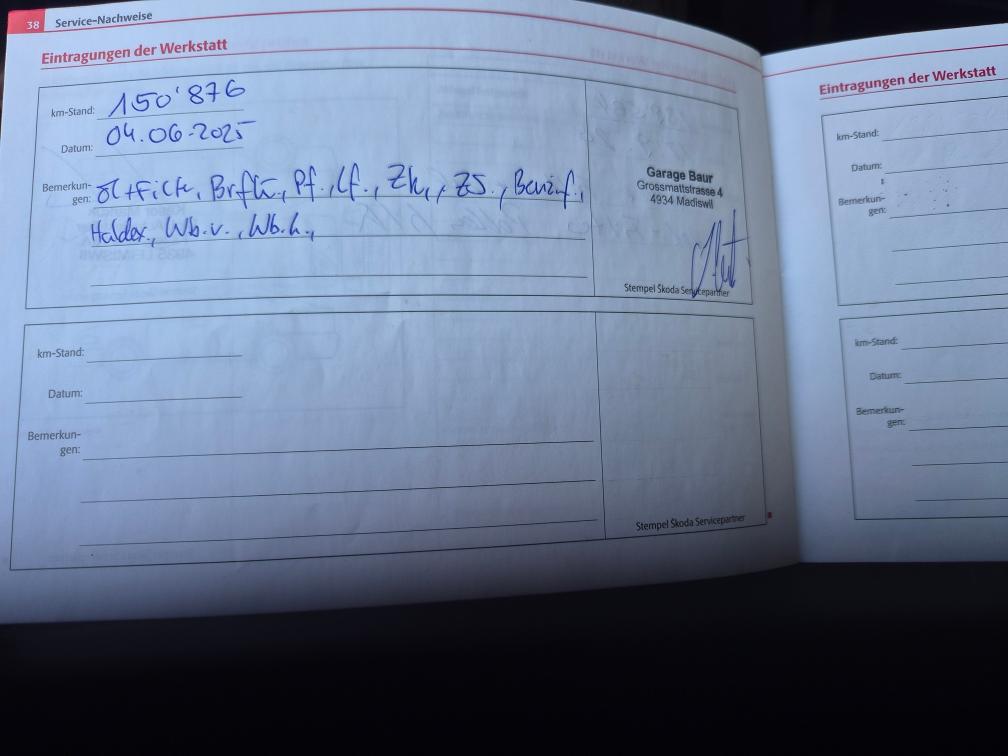 38 Service-Nachweise
Eintragungen der Werkstatt
km-Stand: 150'876
Datum: 04.06.2025
Bemerkun-
gen: Öl+Filter, Brflü., Pf., Lf., Zk., ZS., Benzinf.,
Haldex, Wb.v., Wb.h.,
Garage Baur
Grossmattstrasse 4
4934 Madiswil
Stempel Škoda Servicepartner
km-Stand:
Datum:
Bemerkun-
gen:
Stempel Škoda Servicepartner
Eintragungen der Werkstatt
km-Stand:
Datum:
Bemerkun-
gen:
km-Stand:
Datum:
Bemerkun-
gen: